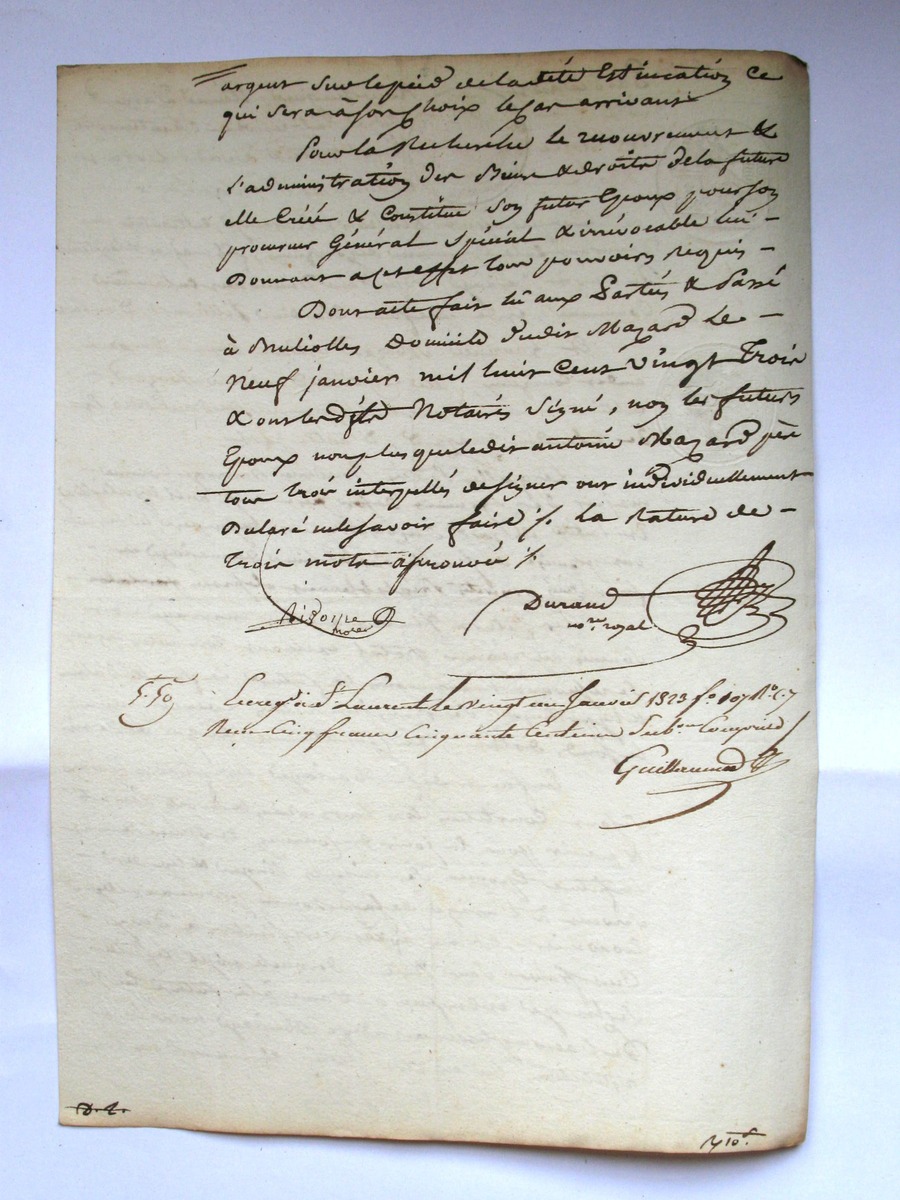 argent sur le pied de la dite Estimation ce
qui sera à son Choix le Cas arrivant
Pour la Recherche le recouvrement &
l'administration des Biens & droits de la future
elle Créé & Constitue son futur Epoux pour son
procureur Général spécial & irrévocable lui -
Donnant a Cet effet tous pouvoirs requis -
Dont acte fait lû aux Parties & Passé
à Domicile dudit Mazard Le -
Neuf janvier mil huit Cent vingt Trois
& ont les d. Notaires Signé, non les futurs
Epoux non plus que ledit antoine Mazard père
tous trois interpellés de signer ont individuellement
Declaré ne le savoir faire ./. la Rature de -
trois mots approuvée ./.
Durand
no.re royal
5.50
Enreg. à St Laurent le vingt un Janvier 1823 fo 107 Ro C. 7
Reçu Cinq francs Cinquante Centimes Subon Comprise
Guillermin
D. 2.